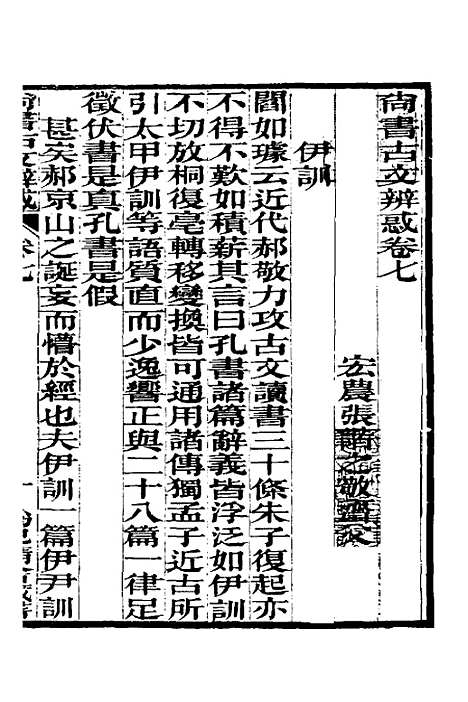 尙書古文辨惑卷七
宏農張諧之敬齋父
伊訓
閻如璩云近代郝敬力攻古文讀書三十條朱子復起亦
不得不歎如積薪其言曰孔書諸篇辭義皆浮泛如伊訓
不切放桐復亳轉移變換皆可通用諸傳獨孟子近古所
引太甲伊訓等語質直而少逸響正與二十八篇一律足
徵伏書是真孔書是假
甚矣郝京山之誕妄而懵於經也夫伊訓一篇伊尹訓
尙書古文辨惑 卷七 一